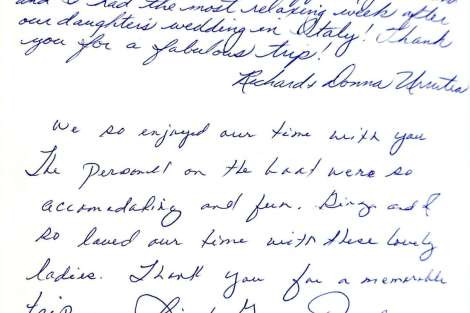 and I had the most relaxing week after
our daughter's wedding in Italy! Thank
you for a fabulous trip!
Richard & Donna Urrutia
We so enjoyed our time with you
The personel on the boat were so
accomadating and fun. and I
so loved our time with these lovely
ladies. Thank you for a memorable
trip